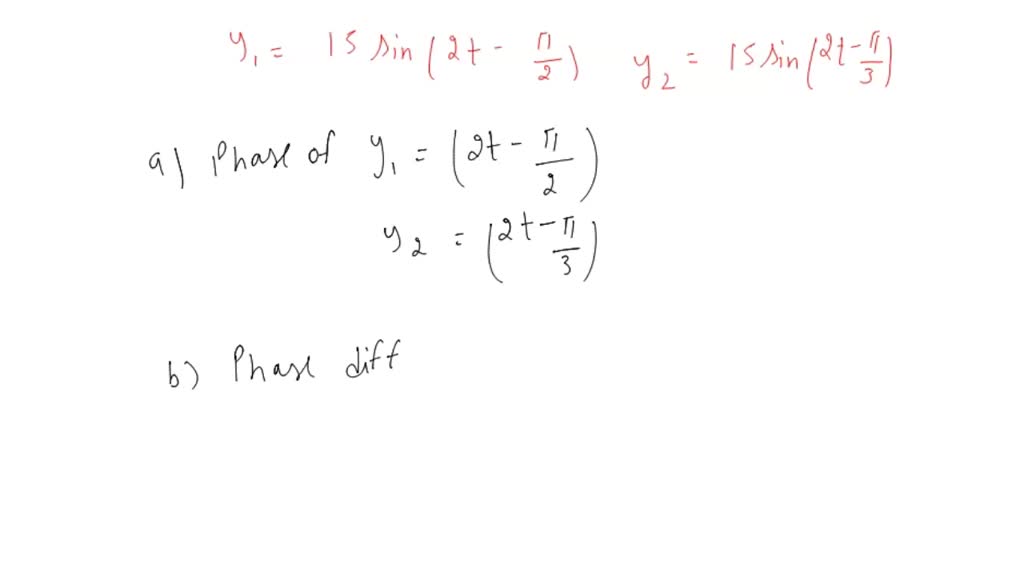 y₁ = 15 sin(2t - π/2) y₂ = 15 sin(2t - π/3)
a) Phase of y₁ = (2t - π/2)
y₂ = (2t - π/3)
b) Phase diff